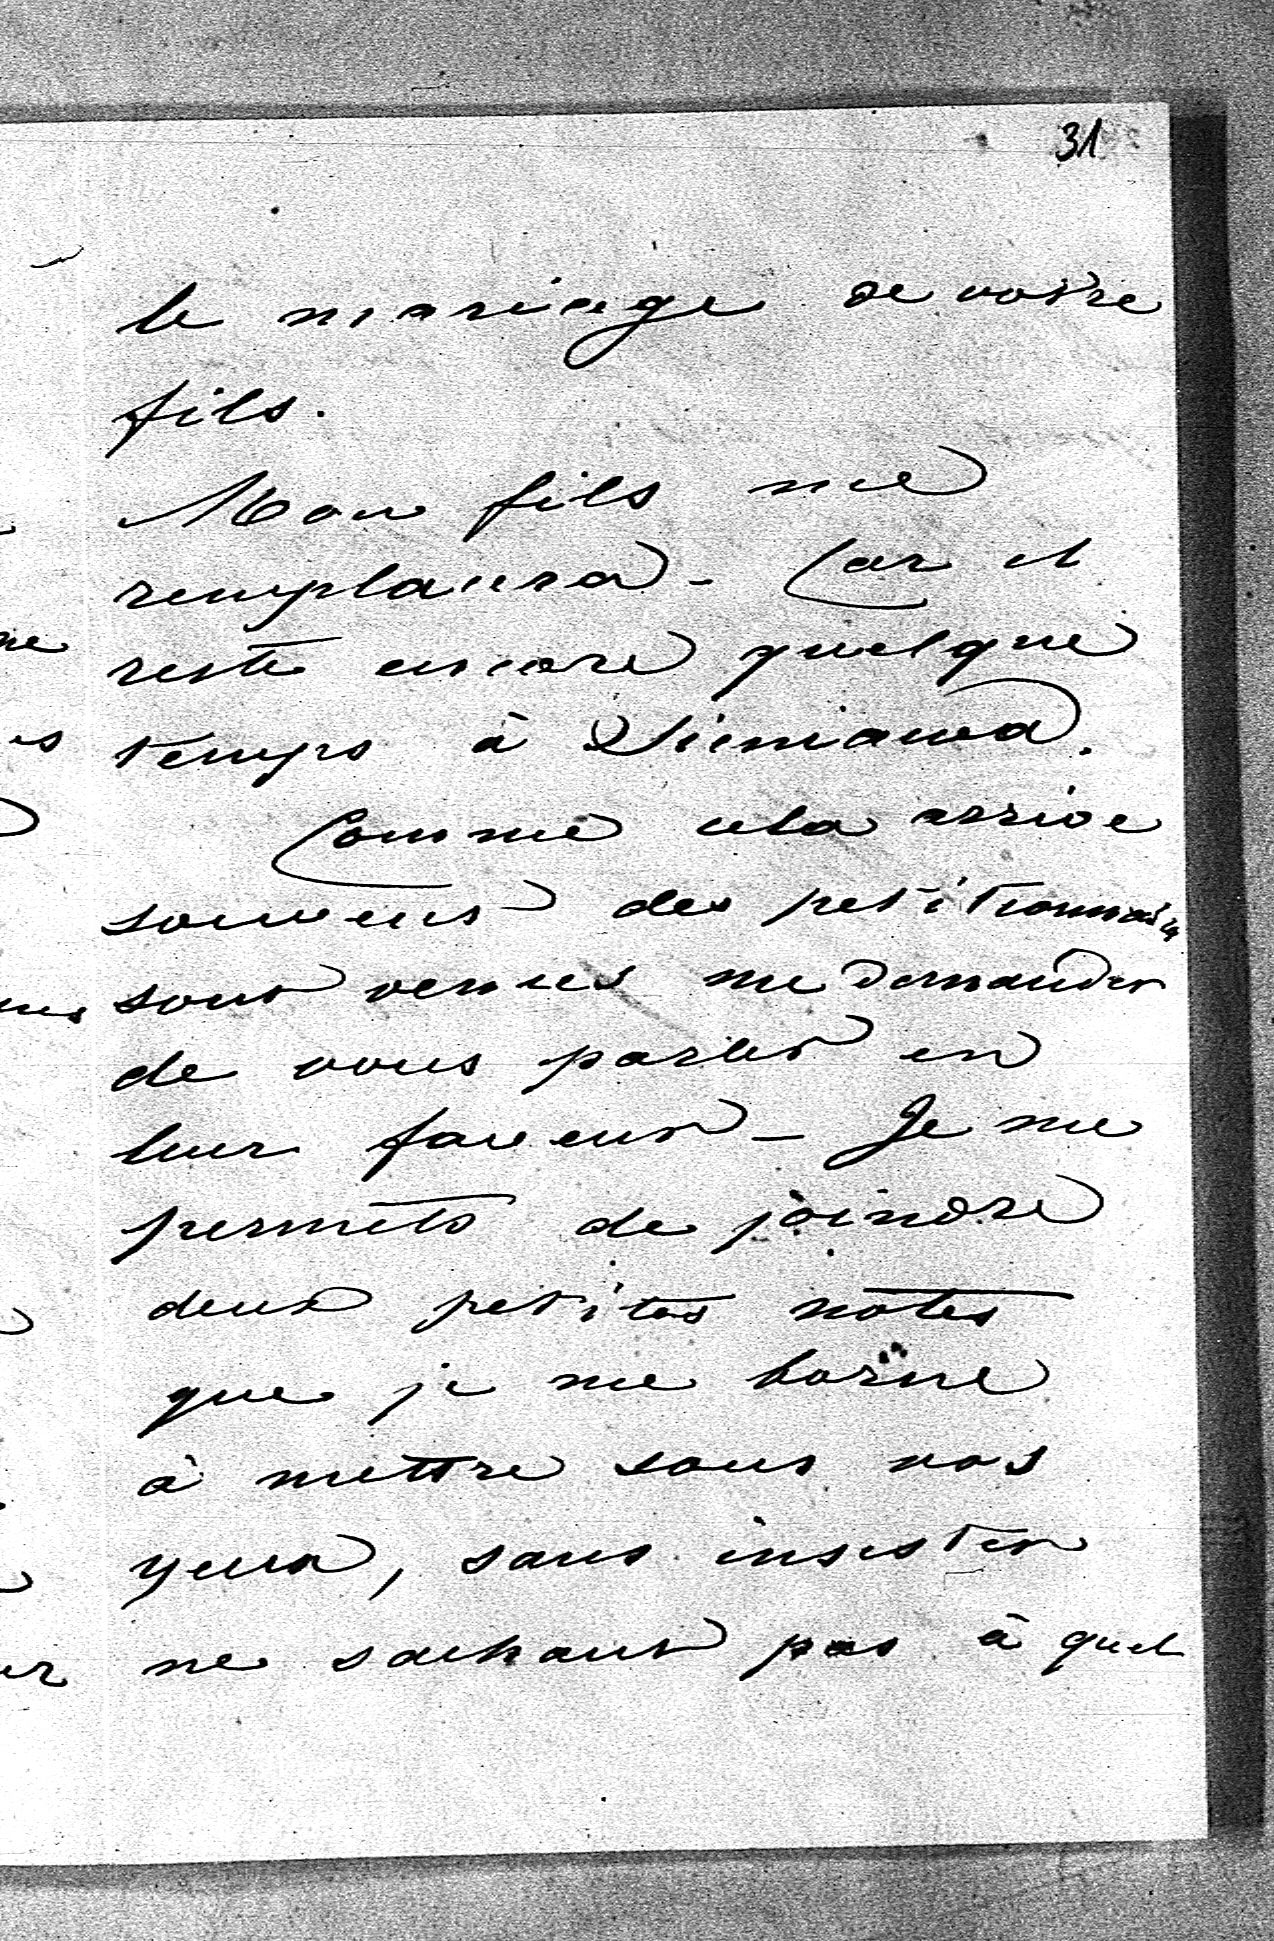 31
le mariage de votre
fils.
Mon fils me
remplacera - Car il
reste encore quelque
temps à Sieniawa.
Comme cela arrive
souvent des petitionnaires
sont venues me demander
de vous parler en
leur faveur - Je me
permets de joindre
deux petites notes
que je me borne
à mettre sous vos
yeux, sans insister
ne sachant pas à quel